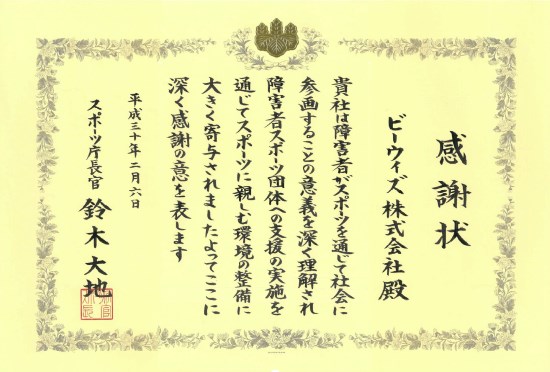 感謝状
ビーウィズ 株式会社 殿
貴社は障害者がスポーツを通じて社会に
参画することの意義を深く理解され
障害者スポーツ団体への支援の実施を
通じてスポーツに親しむ環境の整備に
大きく寄与されましたよってここに
深く感謝の意を表します
平成三十年二月六日
スポーツ庁長官 鈴木大地